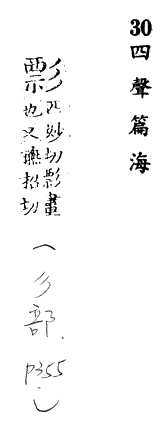 30四聲篇海
彯匹妙切彯畫
也又撫招切
(彡部. P355.)